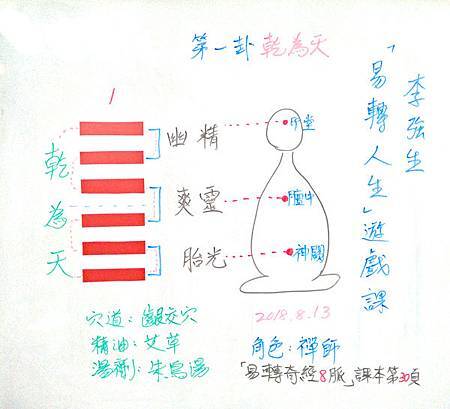 第一卦 乾為天
李強生
「易轉人生」遊戲課
1
乾為天
幽精
爽靈
胎光
印堂
膻中
神闕
穴道：齦交穴
精油：艾草
湯劑：朱鳥湯
2018.8.13
角色：禪師
「易轉奇經8脈」課本第30頁